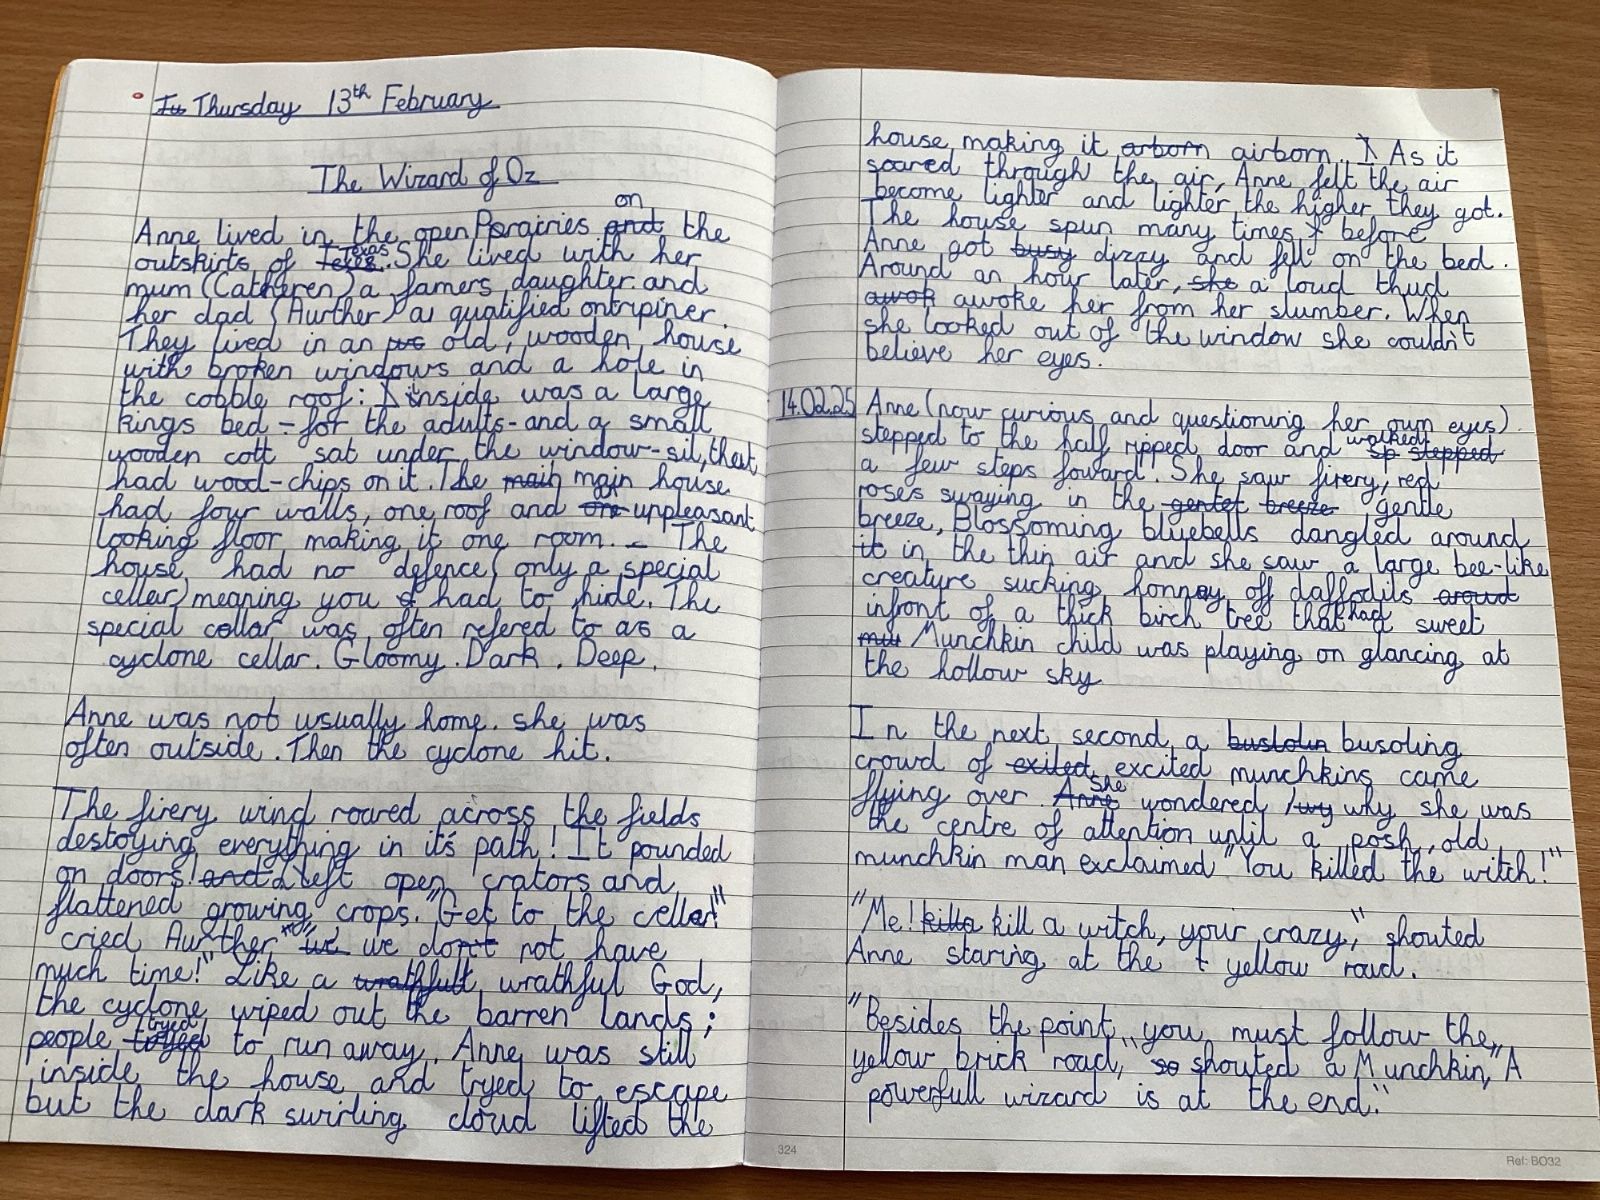 Thursday 13th February
The Wizard of Oz
on
Anne lived in the open Porairies and the
outskirts of Texas. She lived with her
mum (Catheren) a famers daughter and
her dad (Aurther) a qualified ontripiner.
They lived in an old, wooden house
with broken windows and a hole in
the cobble roof: inside was a large
kings bed - for the adults - and a small
wooden cott sat under the window-sil, that
had wood-chips on it. The main main house
had four walls, one roof and unpleasant
looking floor making it one room. - The
house had no defence, only a special
cellar) meaning you had to hide. The
special cellar was often refered to as a
cyclone cellar. Gloomy. Dark. Deep.
Anne was not usually home. she was
often outside. Then the cyclone hit.
The firery wind roared across the fields
destoying everything in it's path! It pounded
on doors! and left open crators and
flattened growing crops. "Get to the cellar!"
cried Aurther "we do not have
much time!" Like a wrathfull wrathful God,
the cyclone wiped out the barren lands;
people tryed to run away. Anne was still
inside the house and tryed to escape
but the dark swirling cloud lifted the
house making it arborn airborn. I As it
soared through the air, Anne felt the air
become lighter and lighter the higher they got.
The house spun many times before
Anne got busy dizzy and fell on the bed.
Around an hour later, she a loud thud
awok awoke her from her slumber. When
she looked out of the window she couldn't
believe her eyes.
14.02.25 Anne (now curious and questioning her own eyes)
stepped to the half ripped door and walked sp stepped
a few steps foward. She saw firery, red
roses swaying in the gentet breeze gentle
breeze, Blossoming bluebells dangled around
it in the thin air and she saw a large bee-like
creature sucking honney off daffodils aroud
infront of a thick birch tree that had a sweet
mu Munchkin child was playing on glancing at
the hollow sky
In the next second, a bustolin busoling
crowd of exiled excited munchkins came
flying over. Anne she wondered why she was
the centre of attention until a posh, old
munchkin man exclaimed "You killed the witch!"
"Me! killa kill a witch, your crazy," shouted
Anne staring at the t yellow road.
"Besides the point, you must follow the
yellow brick road," so shouted a Munchkin, "A
powerfull wizard is at the end."
324
Ref: BO32